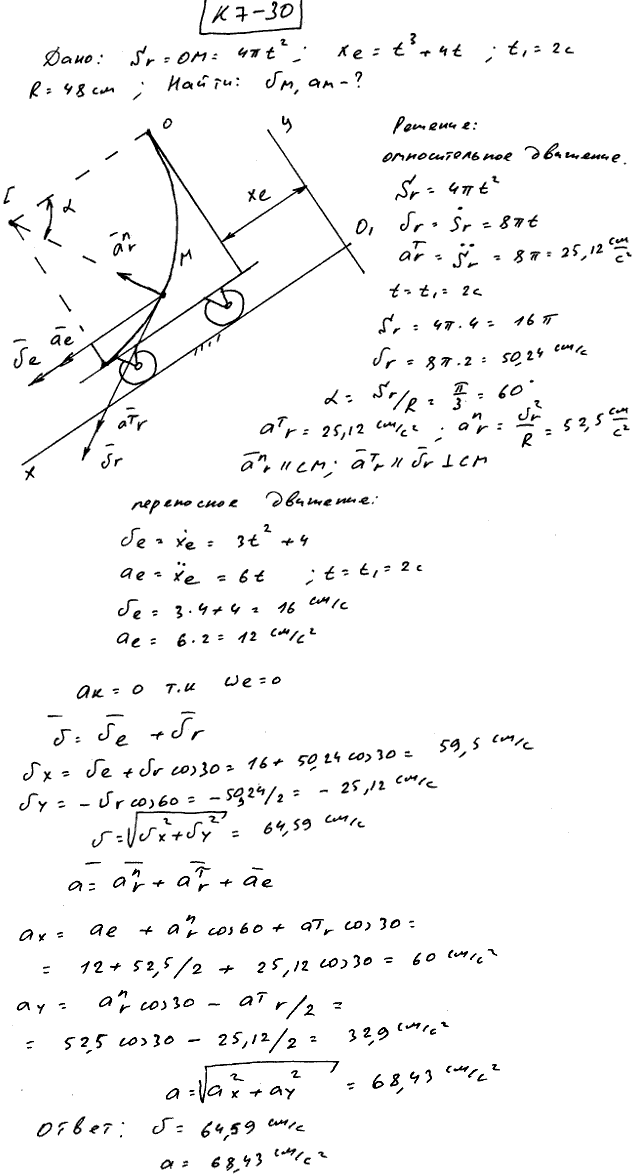 К7-30
Дано: Sr = OM = 4πt²; xe = t³ + 4t; t₁ = 2с
R = 48 см; Найти: υм, aм - ?
O
y
Решение:
относительное движение.
C
α
xe
Sr = 4πt²
O₁
υr = Ṡr = 8πt
āʳⁿ
M
aᵣᵀ = S̈r = 8π = 25,12 см/с²
t = t₁ = 2с
ῡe āe
Sr = 4π·4 = 16π
υr = 8π·2 = 50,24 см/с
α = Sr/R = π/3 = 60°
āᵀr
aᵀr = 25,12 см/с²; aⁿr = υr²/R = 52,5 см/с²
x
ῡr
āⁿr ∥ CM; āᵀr ∥ ῡr ⊥ CM
переносное движение:
υe = ẋe = 3t² + 4
ae = ẍe = 6t ; t = t₁ = 2с
υe = 3·4+4 = 16 см/с
ae = 6·2 = 12 см/с²
aк = 0 т.к ωe = 0
ῡ = ῡe + ῡr
υx = υe + υr cos30 = 16 + 50,24 cos30 = 59,5 см/с
υy = - υr cos60 = - 50,24/2 = - 25,12 см/с
υ = √υx² + υy² = 64,59 см/с
ā = āⁿr + āᵀr + āe
ax = ae + aⁿr cos60 + aᵀr cos30 =
= 12 + 52,5/2 + 25,12 cos30 = 60 см/с²
ay = aⁿr cos30 - aᵀr/2 =
= 52,5 cos30 - 25,12/2 = 32,9 см/с²
a = √ax² + ay² = 68,43 см/с²
Ответ: υ = 64,59 см/с
a = 68,43 см/с²